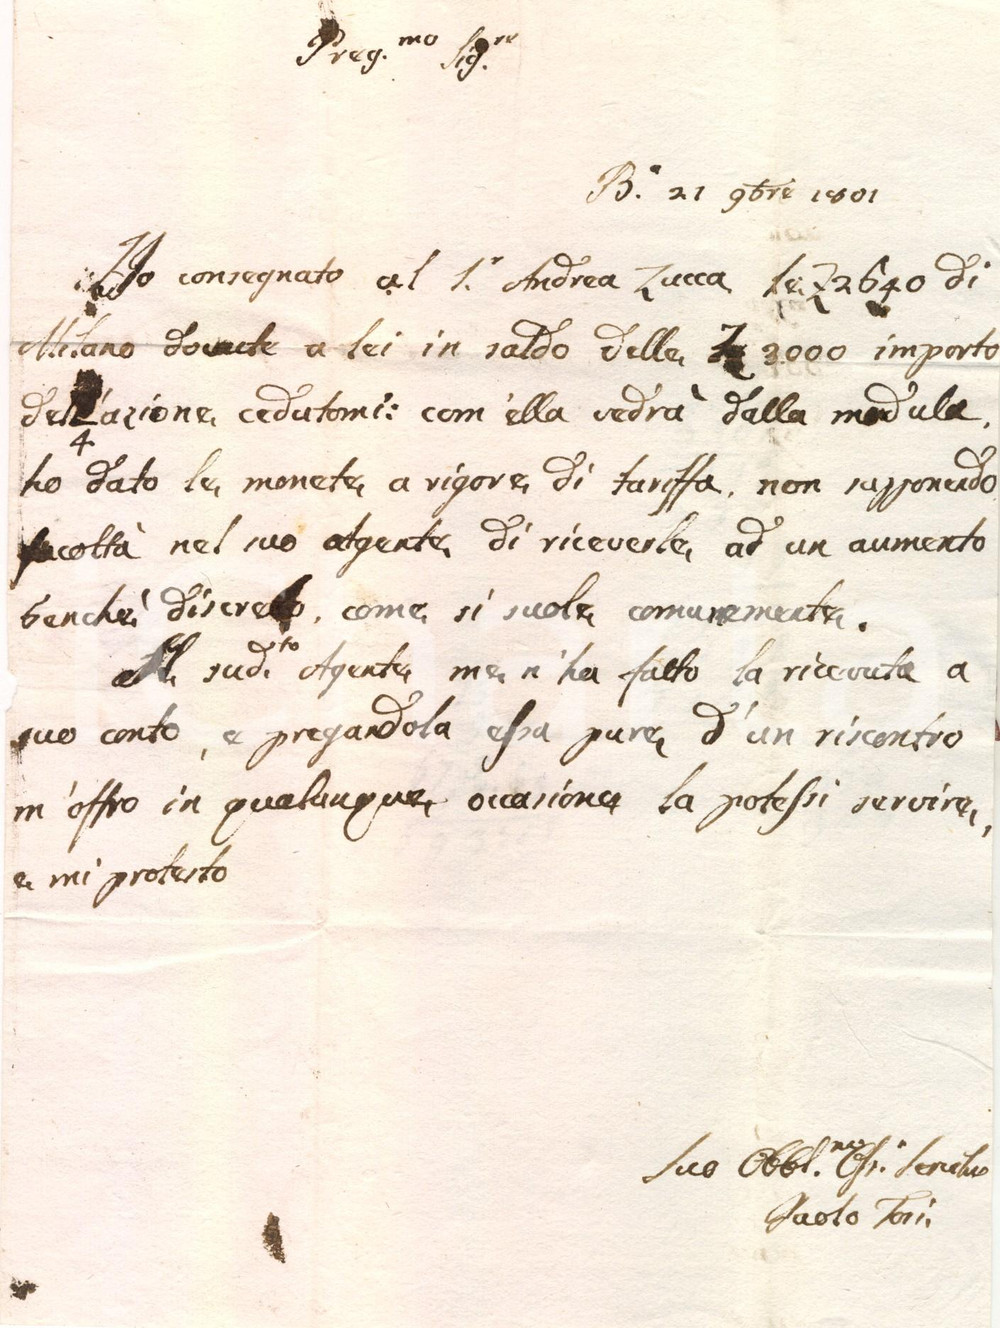 Preg.mo Sig.re
B.a 21 9bre 1801
Ho consegnato al S.r Andrea Zucca le L 2640 di
Milano dovute a lei in saldo delle L 3000 importo
dell'azione cedutomi: com'ella vedrà dalla modula,
4
ho dato le monete a rigore di tariffa, non supponendo
facoltà nel suo Agente di riceverle ad un aumento
benché discreto, come si suole comunemente.
Il sud.to Agente me n'ha fatto la ricevuta a
suo conto, e pregandola essa pure d'un riscontro
m'offro in qualunque occasione la potessi servire,
e mi protesto
Suo Obbl.mo
Paolo Tosi